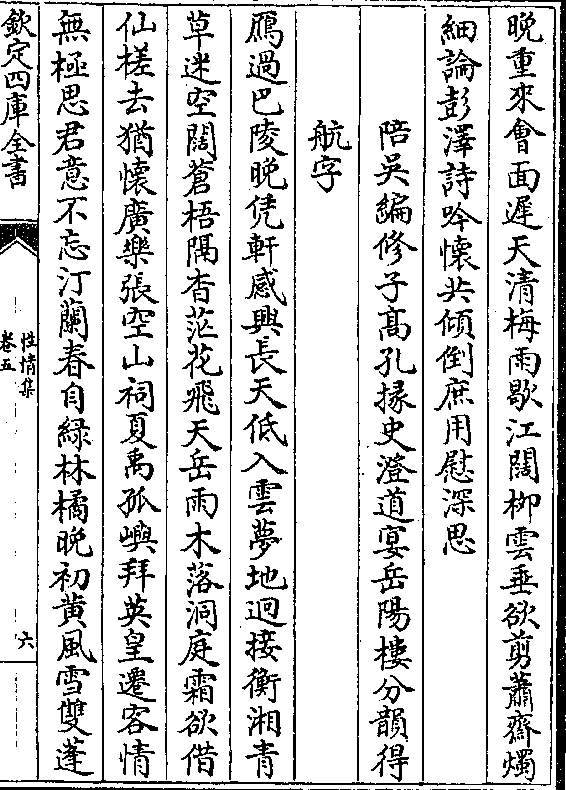 晚重來會面遲天清梅雨歇江闊柳雲垂欲剪蕭齋燭
細論彭澤詩吟懷共傾倒庶用慰深思
陪吴編修子髙孔掾史澄道宴岳陽樓分韻得
航字
鴈過巴陵晚凭軒感興長天低入雲夢地迥接衡湘青
草迷空闊蒼梧隔杳茫花飛天岳雨木落洞庭霜欲借
仙槎去猶懷廣樂張空山祠夏禹孤嶼拜英皇遷客情
無極思君意不忘汀蘭春自緑林橘晚初黄風雪雙蓬
欽定四庫全書
性情集
卷五
六